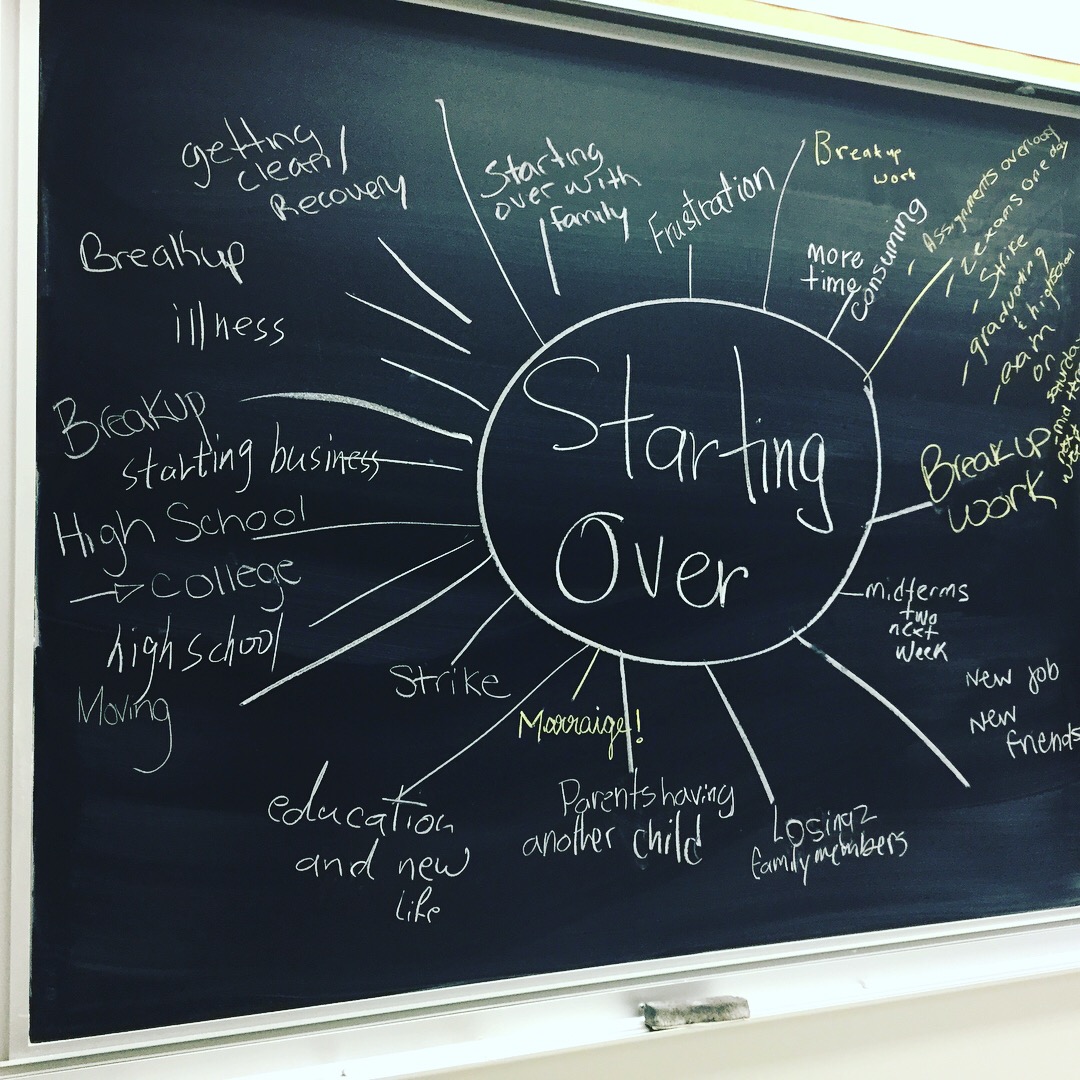 Starting
Over
getting
clean/
Recovery
Breakup
illness
Breakup
starting business
High School
→ college
high school
Moving
Strike
education
and new
life
Marraige!
Parents having
another child
Losing 2
family members
New job
New
friends
midterms
two
next
week
Breakup
work
- Assignments overload
- 2 exams one day
- Strike
- graduating
highschool
- exam
on
saturday
mid
next
more
time
consuming
Breakup
work
Frustration
Starting
over with
family